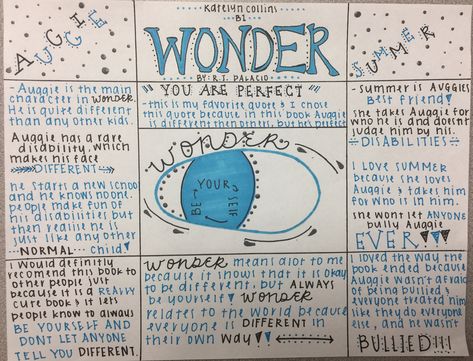 Karelyn Collins
B1
WONDER
BY: R.J. PALACIO
AUGIE
AUGGIE
SUMMER
- Auggie is the main
character in WONDER.
He is quite different
than any other kids.
Auggie has a rare
disability, which
makes his face
DIFFERENT
he starts a new school
and he knows no one.
People make fun of
his disabilities but
then realise he is
just like any other
NORMAL... child
I would definitly
recomend this book to
other people just
because it is a REALLY
cute book & it lets
people know to always
BE YOURSELF AND
DONT LET ANYONE
TELL YOU DIFFERENT.
"YOU ARE PERFECT"
-this is my favorite quote & I chose
this quote because in this book Auggie
is different then others, but he's perfect
WONDER
BE YOUR SELF
WONDER means alot to me
because it shows that it is okay
to be different, but ALWAYS
be yourself WONDER
relates to the world because
everyone is DIFFERENT in
their own way
- summer is AUGGIES
Best friend
she takes Auggie for
who he is and doesn't
judge him by his
DISABILITIES
I LOVE SUMMER
because she loves
Auggie & takes him
for who is in him.
she wont let ANYONE
bully Auggie
EVER
I loved the way the
book ended because
Auggie wasn't afraid
of being bullied &
everyone treated him
like they do everyone
else, and he wasn't
BULLIED!!!